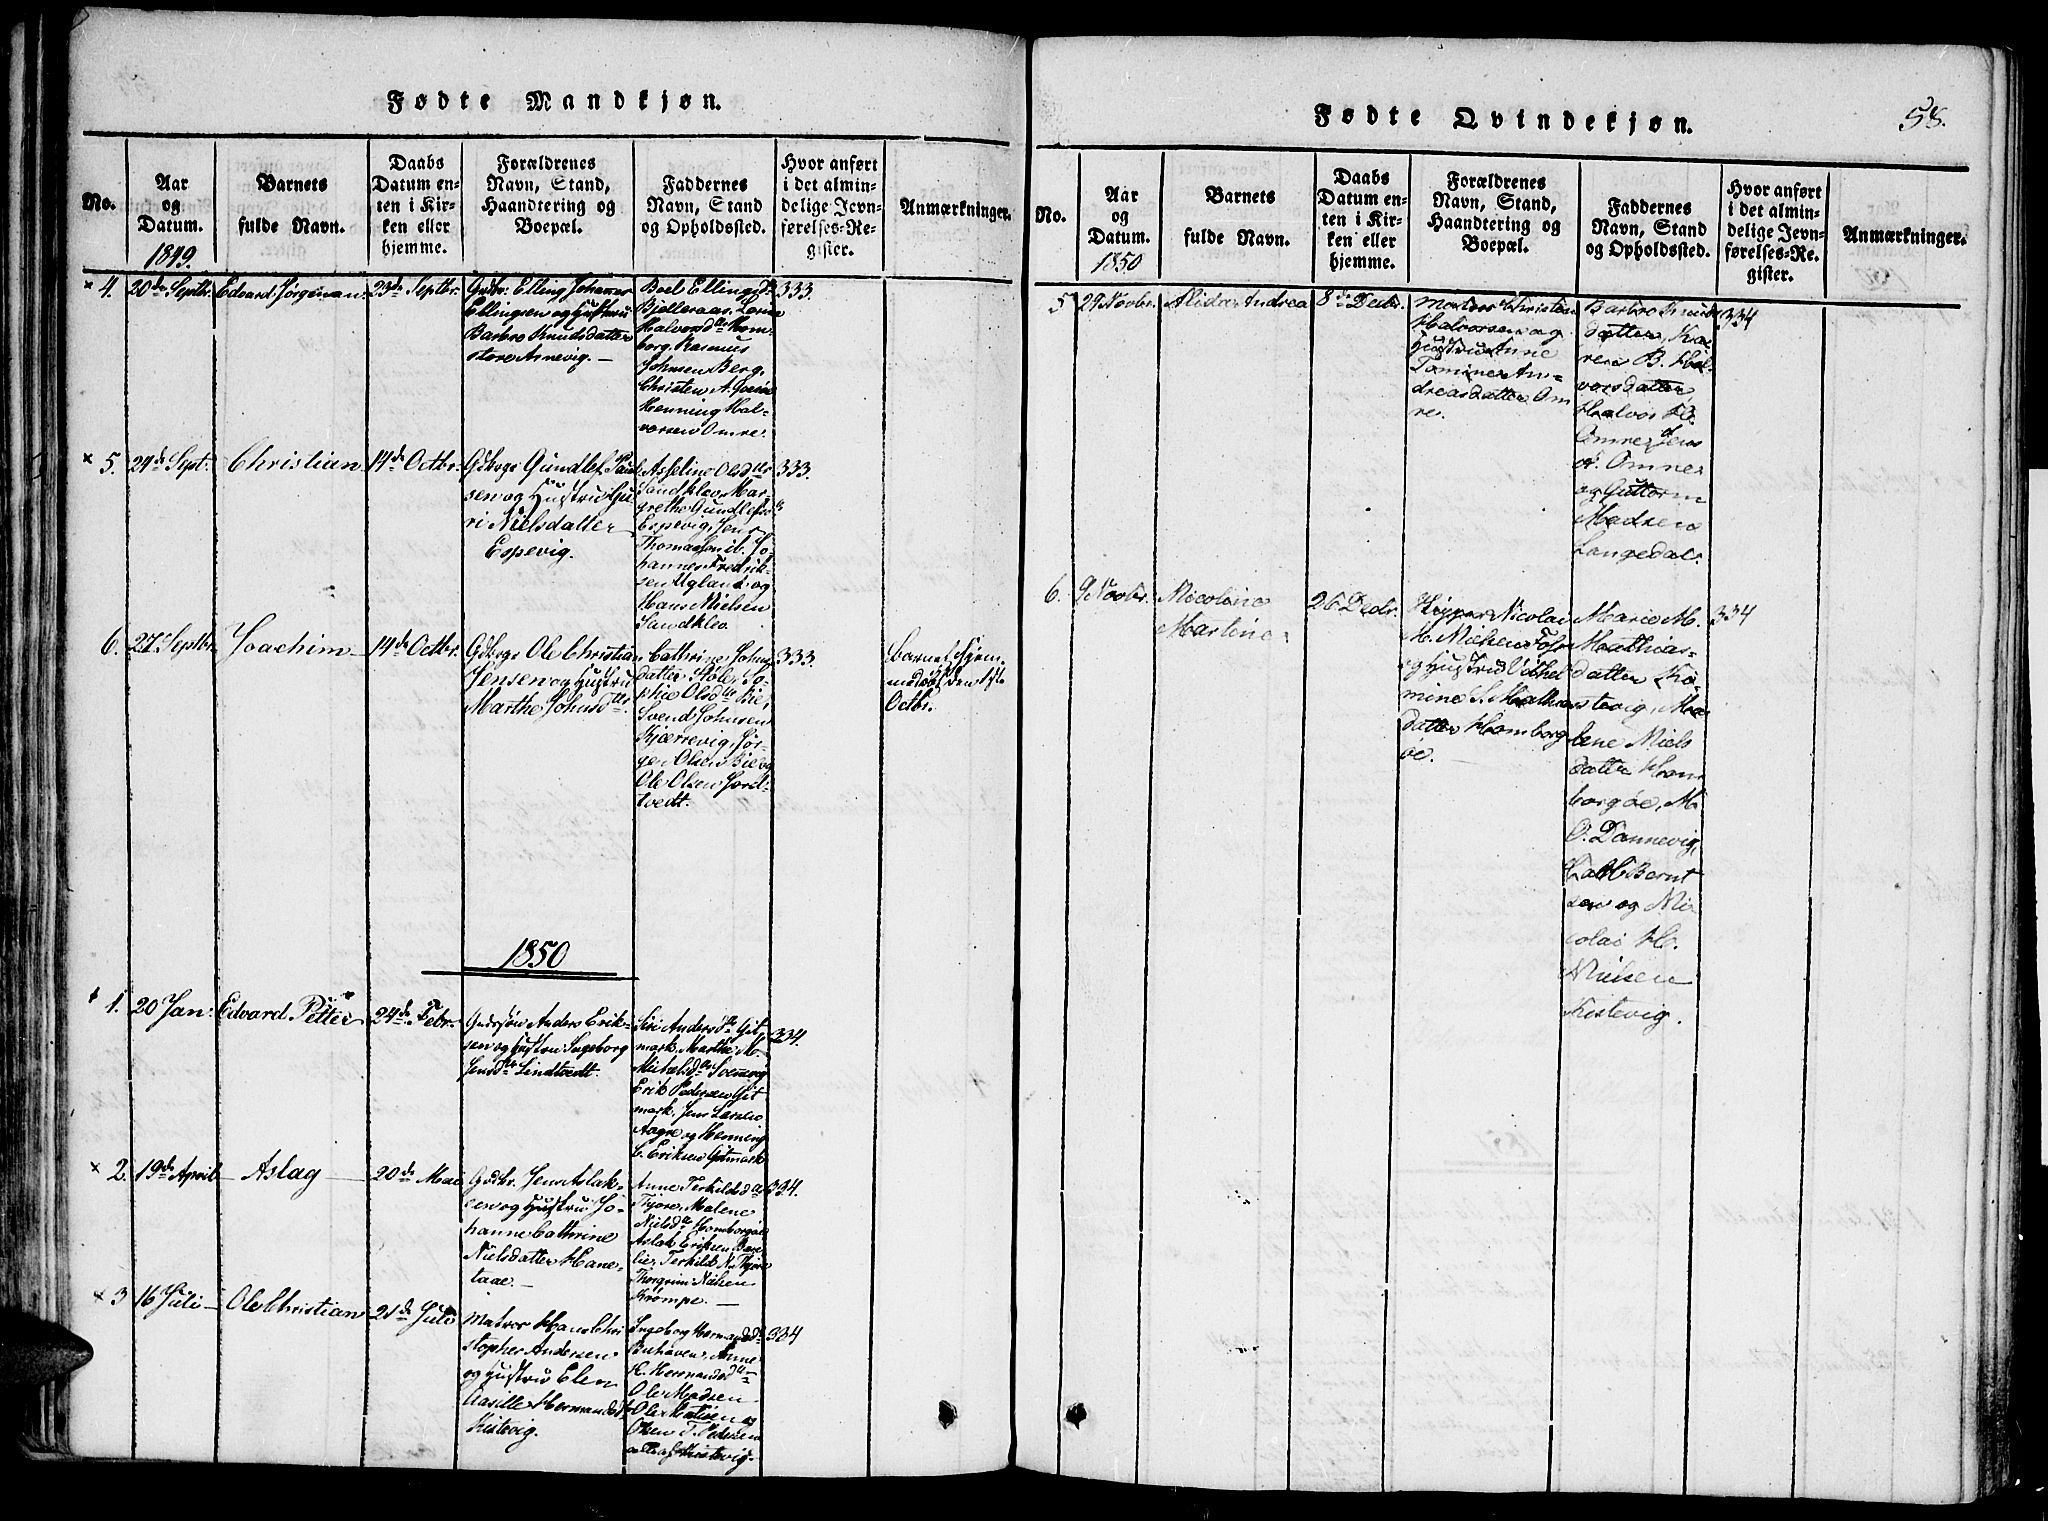 Fødte Mandkjøn.
No.
Aar
og
Datum.
1849.
Barnets
fulde Navn.
Daabs
Datum en-
ten i Kir-
ken eller
hjemme.
Forældrenes
Navn, Stand,
Haandtering og
Boepæl.
Faddernes
Navn, Stand
og Opholdssted.
Hvor anført
i det almin-
delige Jevn-
førelses-Re-
gister.
Anmærkninger.
× 4. 20de Septbr. Edvard Jørginan. 23de Septbr.
Gdbr. Elling Johannes
Ellingsen og Hustru
Barbro Knudsdatter
store Arnevig. —
Boel Ellingsd.
Bjelleraas,
Halvorsdtr Hom-
borg. Rasmus
Johnsen Berg,
Christen A.
Henning Hal-
vorsen Omre.
333.
× 5. 24de Sept. Christian. 14de Octbr.
Gdbrgr Gundlef
sen og Hustru Gu-
ri Nielsdatter
Espevig.
Asseline Olsdttr
Sandklev, Mar-
grethe Gundlefsd
Espevig, Jens
Thomassen ib. Jo-
hannes Fredrik-
sen Ugland og
Hans Nielsen
Sandklev.
333.
6. 27de Septbr. Joachim. 14de Octbr.
Gdbrgr Ole Christian
Jensen og Hustru
Marthe Johnsdttr.
Cathrine Johns
datter Stole, So-
phie Olsdtr Bie,
Svend Johnsen
Kjærrevig, Jør-
gen Olsen Bie og
Ole Olsen
tvedt.
333.
Barnet hjem-
medøbt den
Octbr.
1850
1. 20 Jan. Edvard Petter 24de Febr.
Anders Erik-
sen og Hustru Ingeborg
Jensdtr Lindtvedt.
Siri Andersdtr Git-
mark, Marthe M.
Michelsdtr
Erik Pedersen Git
mark, Jens Larsen
Aagre og Henning
C. Eriksen Gitmark.
334.
× 2. 19de April — Aslag — 20de Mai
Gdbr. Jens Aslak-
sen og Hustru Jo-
hanne Cathrine
Nielsdatter Hane-
taae. —
Anne Terkildsdtr
Thjore, Malene
Nielsdtr Homborgøe
Aslak Eriksen
Terkild N. Thjore
Thorgrim Nielsen
Krømpe. —
334.
× 3 16 Juli — Ole Christian 21de Juli
Matros Hans Chri
stopher Andersen
og Hustru Elen
Aasille Hermandsd
Kistevig.
Ingeborg Hermandsd
Anne
K. Hermandsdtr
Ole Madsen
Ole
Olsen T. Pedersen
alle af Kistevig.
334
Fødte Qvindekjøn.
58.
No.
Aar
og
Datum.
1850
Barnets
fulde Navn.
Daabs
Datum en-
ten i Kir-
ken eller
hjemme.
Forældrenes
Navn, Stand,
Haandtering og
Boepæl.
Faddernes
Navn, Stand
og Opholdssted.
Hvor anført
i det almin-
delige Jevn-
førelses-Re-
gister.
Anmærkninger.
5 29 Novbr. Alida Andrea 8de Decbr.
Matros Christen
Halvorsen og
Hustru Anne
Tomine An-
dreasdatter Om
re.
Barbro Knuds
datter, Ka-
ren B. Hal-
vorsdatter
Halvor H.
Omre, Jens
Omre
og Guttorm
Madsen
Langedal.
334
6. 9 Novbr. Nicoline
Martine.
26 Decbr.
Skipper Nicolai
M. Nielsen
og Hustru Vilhel
mine S. Mathias
datter Homborg
øe.
Marie M.
Mathias-
datter Ki-
stevig, Ma
lene Niels
datter Hom
borgøe, M.
O. Dannevig,
Bernt
sen og Ni
colai H.
Nielsen
Kistevig.
334